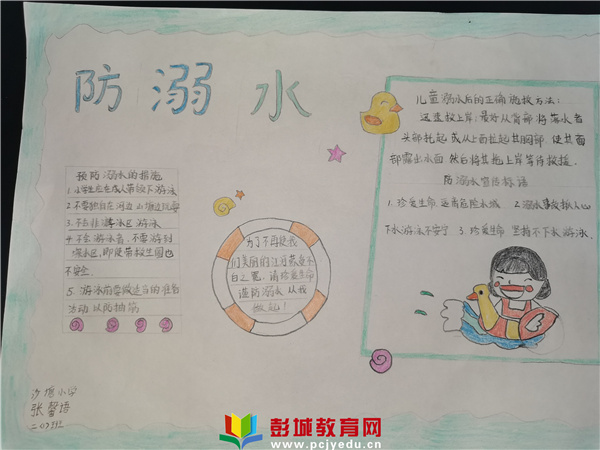 防溺水
预防溺水的措施
1.小学生应在成人带领下游泳
2.不要独自在河边山塘边玩耍
3.不去非游泳区游泳
4.不会游泳者,不要游到
深水区,即使带救生圈也
不安全
5.游泳前要做适当的准备
活动以防抽筋
为了不再使我
们美丽的江河蒙受不
白之冤,请珍爱生命
谨防溺水从我
做起!
儿童溺水后的正确施救方法:
迅速救上岸:最好从背部将落水者
头部托起或从上面拉起其胸部,使其面
部露出水面,然后将其拖上岸等待救援。
防溺水宣传标语
1.珍爱生命 远离危险水域 2.溺水事故揪人心
下水游泳不安宁 3.珍爱生命 坚持不下水游泳。
沙塘小学
张馨语
彭城教育网
www.pcjyedu.cn